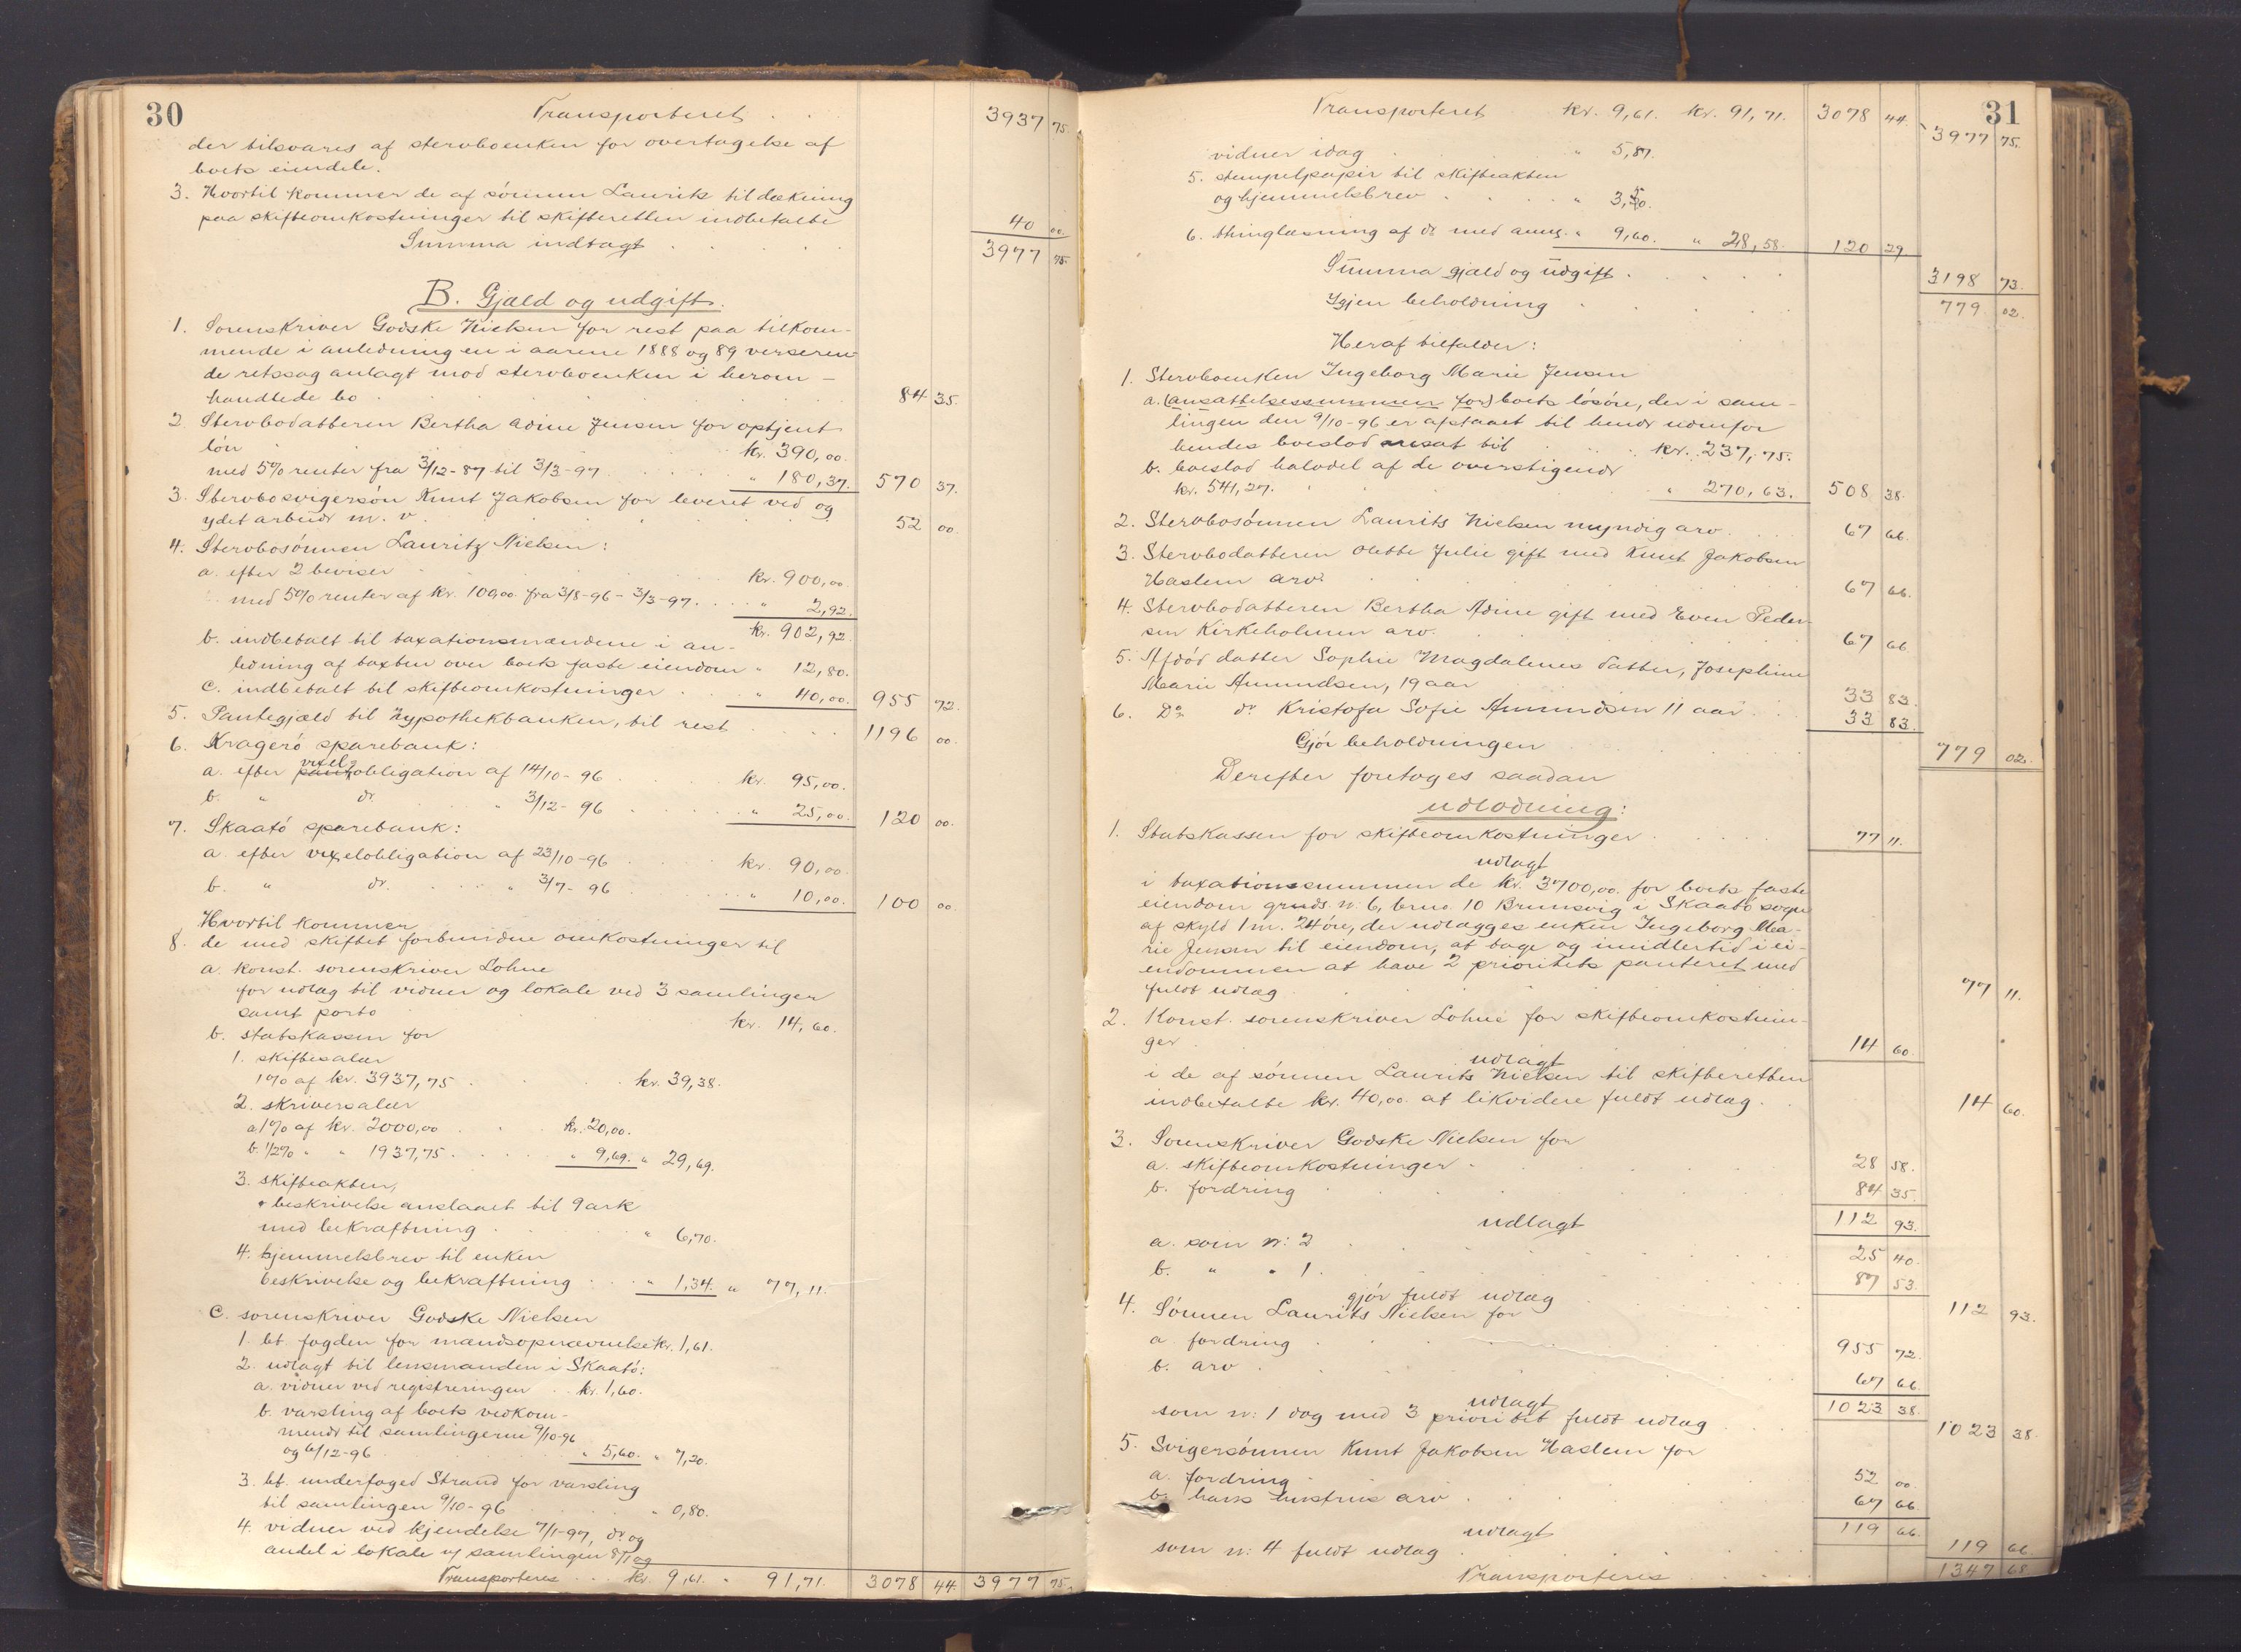 30
Transporteret . . 3937 75.
der tilsvares af stervboenken for overtagelse af
boets eiendele.
3. Hvortil kommer de af sønnen Laurits til dækning
paa skifteomkostninger til skifteretten indbetalte 40 00.
Summa indtægt . . . 3977 75.
B. Gjæld og udgift.
1. Sorenskriver Godske Nielsen for rest paa tilkom-
mende i anledningen i aarene 1888 og 89 verseren-
de retssag anlagt mod stervboenken i berom-
handlede bo . . . 84 35.
2. Stervbodatteren Bertha Adine Jensen for optjent
løn . . . kr. 390,00.
med 5% renter fra 3/12-87 til 3/3-97 . . . " 180,37. 570 37.
3. Stervbosvigersøn Knut Jakobsen for leveret ved og
ydet arbeide m. v. . . . 52 00
4. Stervbosønnen Lauritz Nielsen:
a. efter 2 beviser . . . kr. 900,00.
med 5% renter af kr. 100,00 fra 3/8-96 - 3/3-97 . . . " 2,92.
kr. 902,92.
b. indbetalt til taxationsmændene i an-
ledning af taxten over boets faste eiendom " 12,80.
c. indbetalt til skifteomkostninger . . " 40,00. 955 72.
5. Pantegjæld til Hypothekbanken, til rest . . . 1196 00.
6. Kragerø sparebank:
a. efter vexelobligation af 14/10-96 . . . kr. 95,00.
b. " do. . . " 3/12-96 . . . " 25,00. 120 00.
7. Skaatø sparebank:
a. efter vexelobligation af 23/10-96 . . . kr. 90,00
b. " do. . . " 3/7-96 . . . " 10,00. 100 00.
Hvortil kommer
8. de med skiftet forbundne omkostninger til
a. konst. sorenskriver Lohne
for udlæg til vidner og lokale ved 3 samlinger
samt porto . . . kr. 14,60.
b. statskassen for
1. skiftesalær
1% af kr. 3937,75 . . . kr. 39,38.
2. skriversalær
a. 1% af kr. 2000,00 . . . kr. 20,00.
b. 1/2% " " 1937,75 . . . " 9,69. " 29,69.
3. skifteakten,
beskrivelse anslaaet til 9 ark
med bekræftning . . . " 6,70.
4. hjemmelsbrev til enken
beskrivelse og bekræftning . . . " 1,34. " 77,11.
c. sorenskriver Godske Nielsen
1. bt. fogden for mandsopnævnelse kr. 1,61.
2. udlagt til lensmanden i Skaatø:
a. vidner ved registreringen . . kr. 1,60.
b. varsling af boets vedkom-
mende til samlingerne 9/10-96
og 6/12-96 . . . " 5,60. " 7,20.
3. bt. underfoged Strand for varsling
til samlingen 9/10-96 . . . " 0,80.
4. vidner ved kjendelse 7/1-97, do. og
andel i lokale v/ samlingen 8/1 og
Transporteres . . . kr. 9,61. " 91,71. 3078 44. 3977 75.
31
Transporteret kr. 9,61. kr. 91,71. 3078 44. 3977 75.
vidner idag . . . " 5,87.
5. stempelpapir til skifteakten
og hjemmelsbrev . . . " 3,50.
6. thinglæsning af do. med anm. " 9,60. " 28,58. 120 29
Summa gjæld og udgift . . . 3198 73.
Igjen beholdning . . . 779 02.
Heraf tilfalder:
1. Stervboenken Ingeborg Marie Jensen
a. (ansættelsessummen for) boets løsøre, der i sam-
lingen den 9/10-96 er afstaaet til hende udenfor
hendes boeslod ansat til . . . kr. 237,75.
b. boeslod halvdel af de overstigende
kr. 541,27. . . . " 270,63. 508 38.
2. Stervbosønnen Laurits Nielsen myndig arv . . . 67 66.
3. Stervbodatteren Olette Julie gift med Knut Jakobsen
Haslem arv. . . . 67 66.
4. Stervbodatteren Bertha Adine gift med Even Peder-
sen Kirkeholmen arv. . . . 67 66
5. Afdød datter Sophie Magdalenes datter, Josephine
Marie Amundsen, 19 aar . . . 33 83.
6. Do. do. Kristofa Sofie Amundsen 11 aar . . . 33 83.
Gjør beholdningen . . . 779 02.
Derefter foretoges saadan
udlodning:
1. Statskassen for skifteomkostninger . . . 77 11.
udlagt
i taxationssummen de kr. 3700,00. for boets faste
eiendom grds. n: 6, brno. 10 Brunsvig i Skaatø sogn
af skyld 1 m. 24 øre, der udlægges enken Ingeborg Ma-
rie Jensen til eiendom, at tage og imidlertid i ei-
endommen at have 2 prioritets panteret med
fuldt udlæg . . . 77 11.
2. Konst. sorenskriver Lohne for skifteomkostnin-
ger . . . 14 60.
udlagt
i de af sønnen Laurits Nielsen til skifteretten
indbetalte kr. 40,00. at likvidere fuldt udlæg. . . 14 60.
3. Sorenskriver Godske Nielsen for
a. skifteomkostninger . . . 28 58.
b. fordring . . . 84 35.
112 93.
udlagt
a. som n: 2 . . . 25 40.
b. " " 1. . . . 87 53.
gjør fuldt udlæg . . . 112 93.
4. Sønnen Laurits Nielsen for
a. fordring . . . 955 72.
b. arv . . . 67 66.
1023 38.
udlagt
som n: 1 dog med 3 prioritet fuldt udlæg . . . 1023 38.
5. Svigersønnen Knut Jakobsen Haslem for
a. fordring . . . 52 00
b. hans hustrus arv . . . 67 66.
119 66.
udlagt
som n: 4 fuldt udlæg . . . 119 66
Transporteres . . . 1347 68